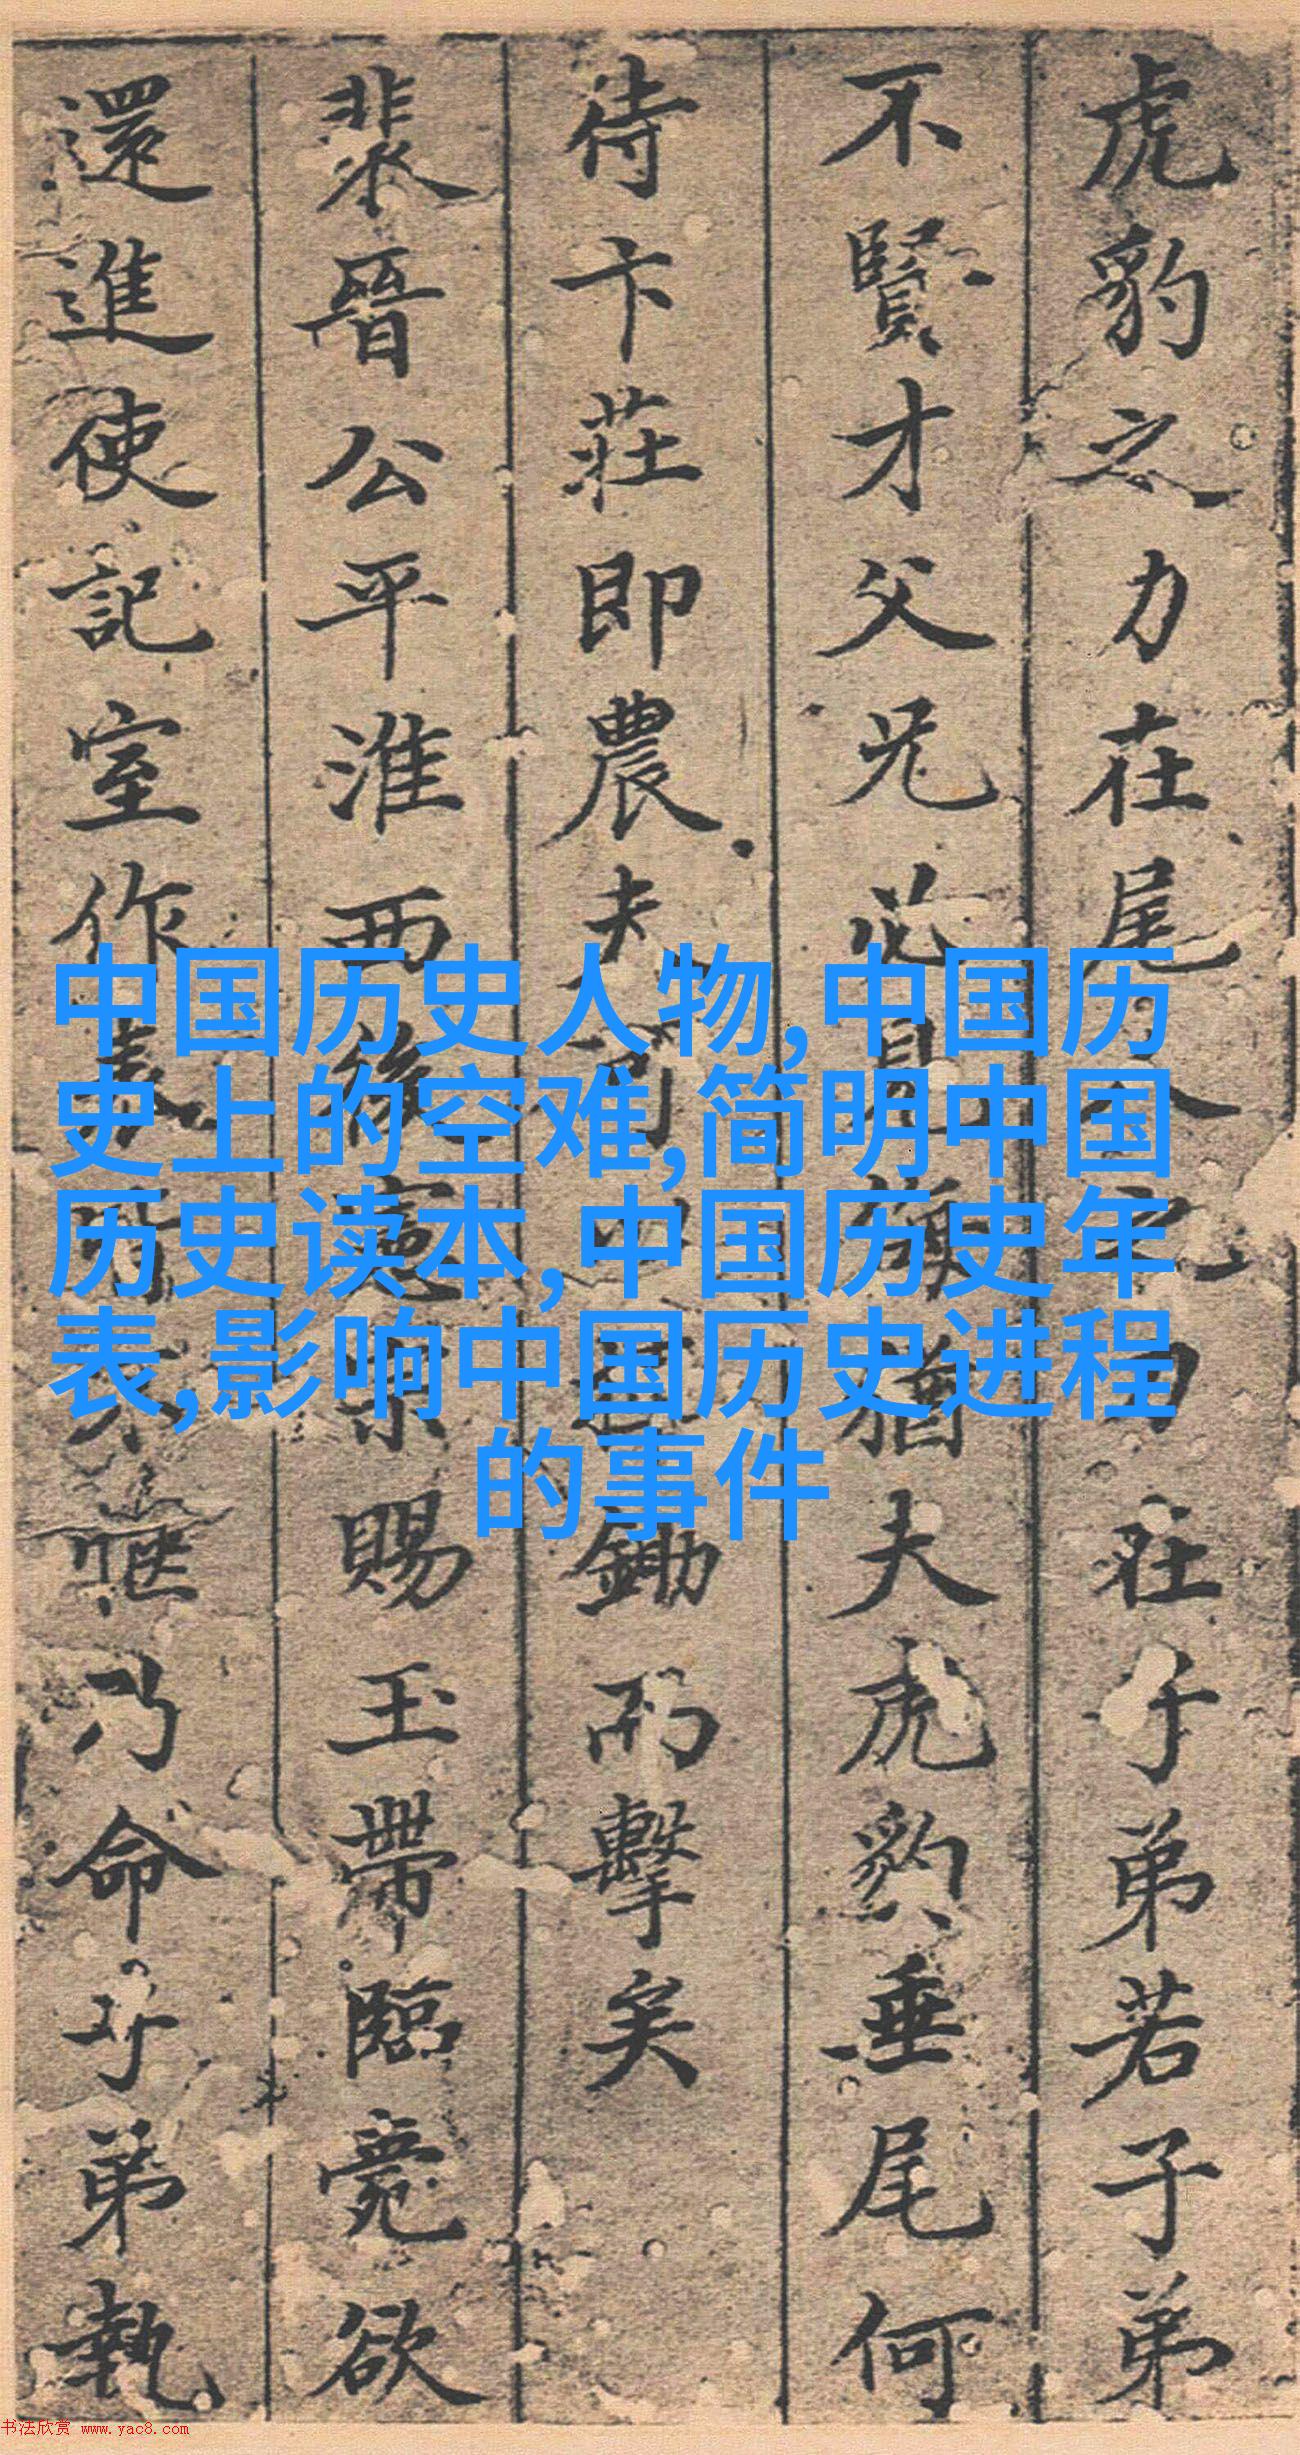 虎豹之力在尾人之力在子弟若子弟
不賢才父兄必見猶夫虎豹垂尾何
待卞莊即農夫可以鋤而擊矣
裴晉公平淮西後憲宗賜玉帶臨薨欲
還進使記室作表皆不愜乃命子弟執
中国历史人物,中国历
史上的空难,简明中国
历史读本,中国历史年
表,影响中国历史进程
的事件
书法欣赏 www.yac8.com